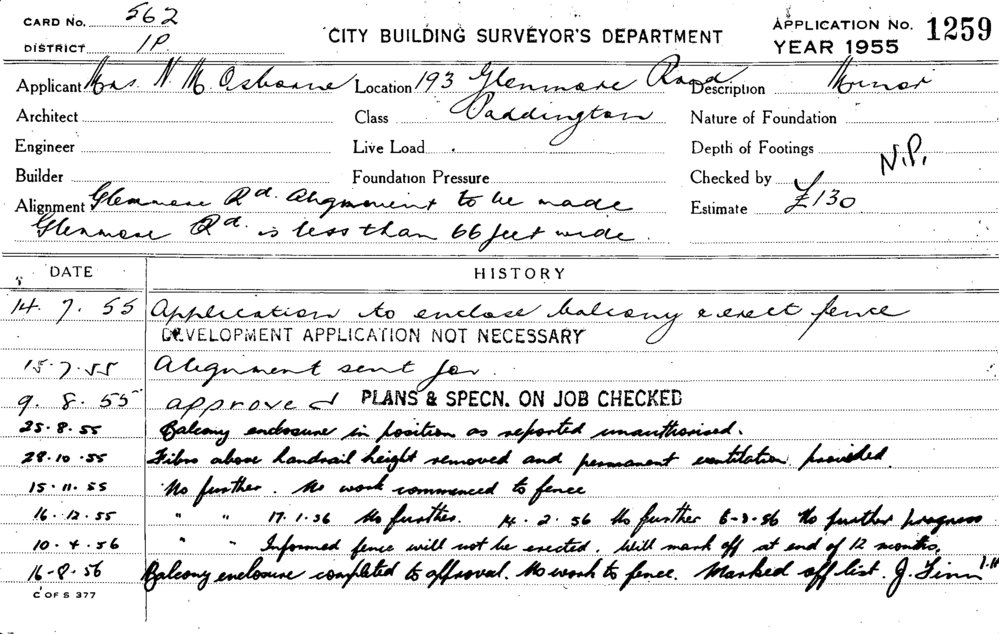 CARD No. 562
DISTRICT 1P
CITY BUILDING SURVEYOR'S DEPARTMENT
APPLICATION No. 1259
YEAR 1955
Applicant Mrs. N. M. Osborne Location 193 Glenmore Road Description Minor
Architect Class Paddington Nature of Foundation
Engineer Live Load Depth of Footings N.P.
Builder Foundation Pressure Checked by
Alignment Glenmore Rd. Alignment to be made Estimate £130
Glenmore Rd. is less than 66 feet wide.
DATE HISTORY
14.7.55 Application to enclose balcony & erect fence
DEVELOPMENT APPLICATION NOT NECESSARY
15.7.55 Alignment sent for.
9.8.55 approved PLANS & SPECN. ON JOB CHECKED
25.8.55 Balcony enclosure in position as reported unauthorised.
28.10.55 Fibro above handrail height removed and permanent ventilation provided.
15.11.55 No further. No work commenced to fence
16.12.55 " " 17.1.56 No further. 14.2.56 No further 6-3-56 No further progress
10.4.56 " " Informed fence will not be erected. Will mark off at end of 12 months.
16-8-56 Balcony enclosure completed to approval. No work to fence. Marked off list. J. Finn
C OF S 377